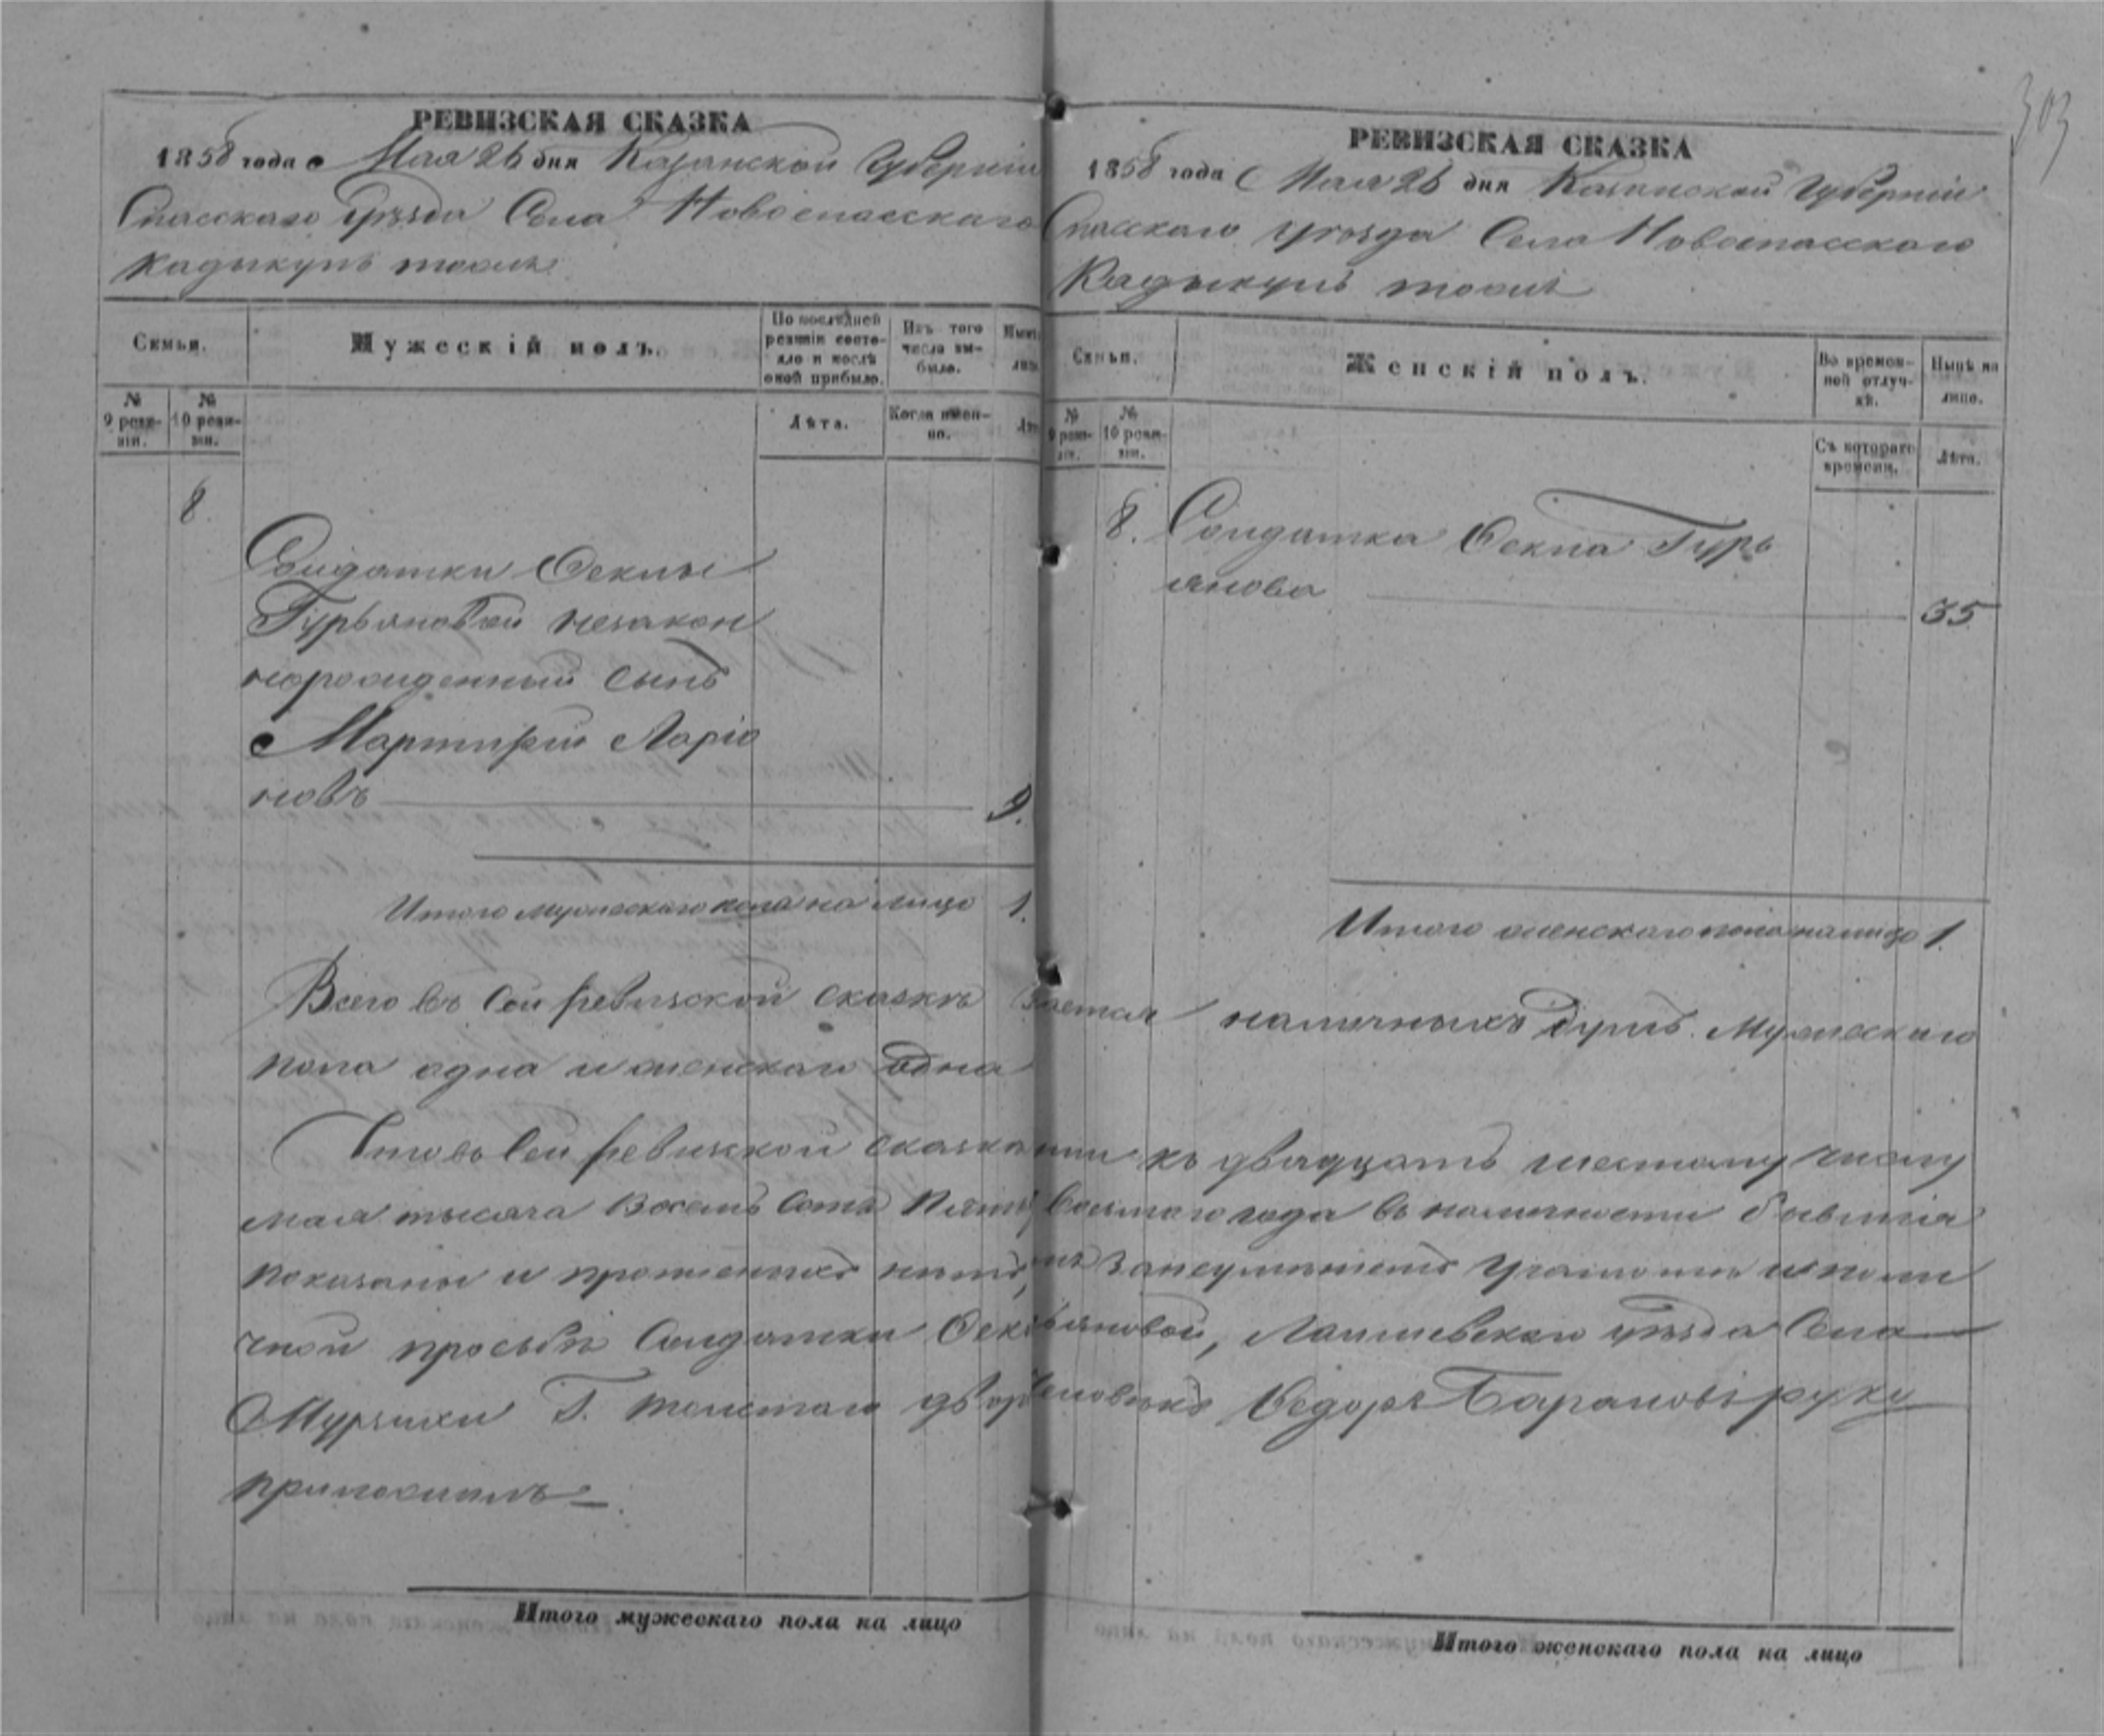 303
РЕВИЗСКАЯ СКАЗКА
1858 года Мая 26 дня Казанской Губерніи
Спасскаго Уѣзда Села Новоспасскаго
Кадыкуль тожъ
Семьи.
Мужескій полъ.
По послѣдней ревизіи состояло и послѣ оной прибыло.
Изъ того числа выбыло.
№ 9 ревизіи.
№ 10 ревизіи.
Лѣта.
Когда именно.
8
Солдатки Феклы
Гурьяновой незакон
норожденный сынъ
Мартирій Ларіо
новъ 9.
Итого мужескаго пола на лицо 1.
РЕВИЗСКАЯ СКАЗКА
1858 года Мая 26 дня Казанской Губерніи
Спасскаго уѣзда Села Новоспасскаго
Кадыкуль тожъ
Семьи.
Женскій полъ.
Во временной отлучкѣ.
Нынѣ на лицо.
№ 9 ревизіи.
№ 10 ревизіи.
Съ котораго времени.
Лѣта.
8. Солдатка Фекла Гурь
янова 35
Итого женскаго пола на лицо 1.
Всего въ сей ревизской сказкѣ наличныхъ душъ Мужескаго
пола одна и женскаго одна
Что въ сей ревизской сказкѣ къ двадцать шестому числу
мая тысяча восемь сотъ восьмаго года въ наличности бывшія
показаны и грамоте и по ли
чной просьбѣ Солдатки Лаишевскаго уѣзда Села
Мурзихи Г. Толстаго Федоръ Барановъ руку
приложилъ
Итого мужескаго пола на лицо
Итого женскаго пола на лицо